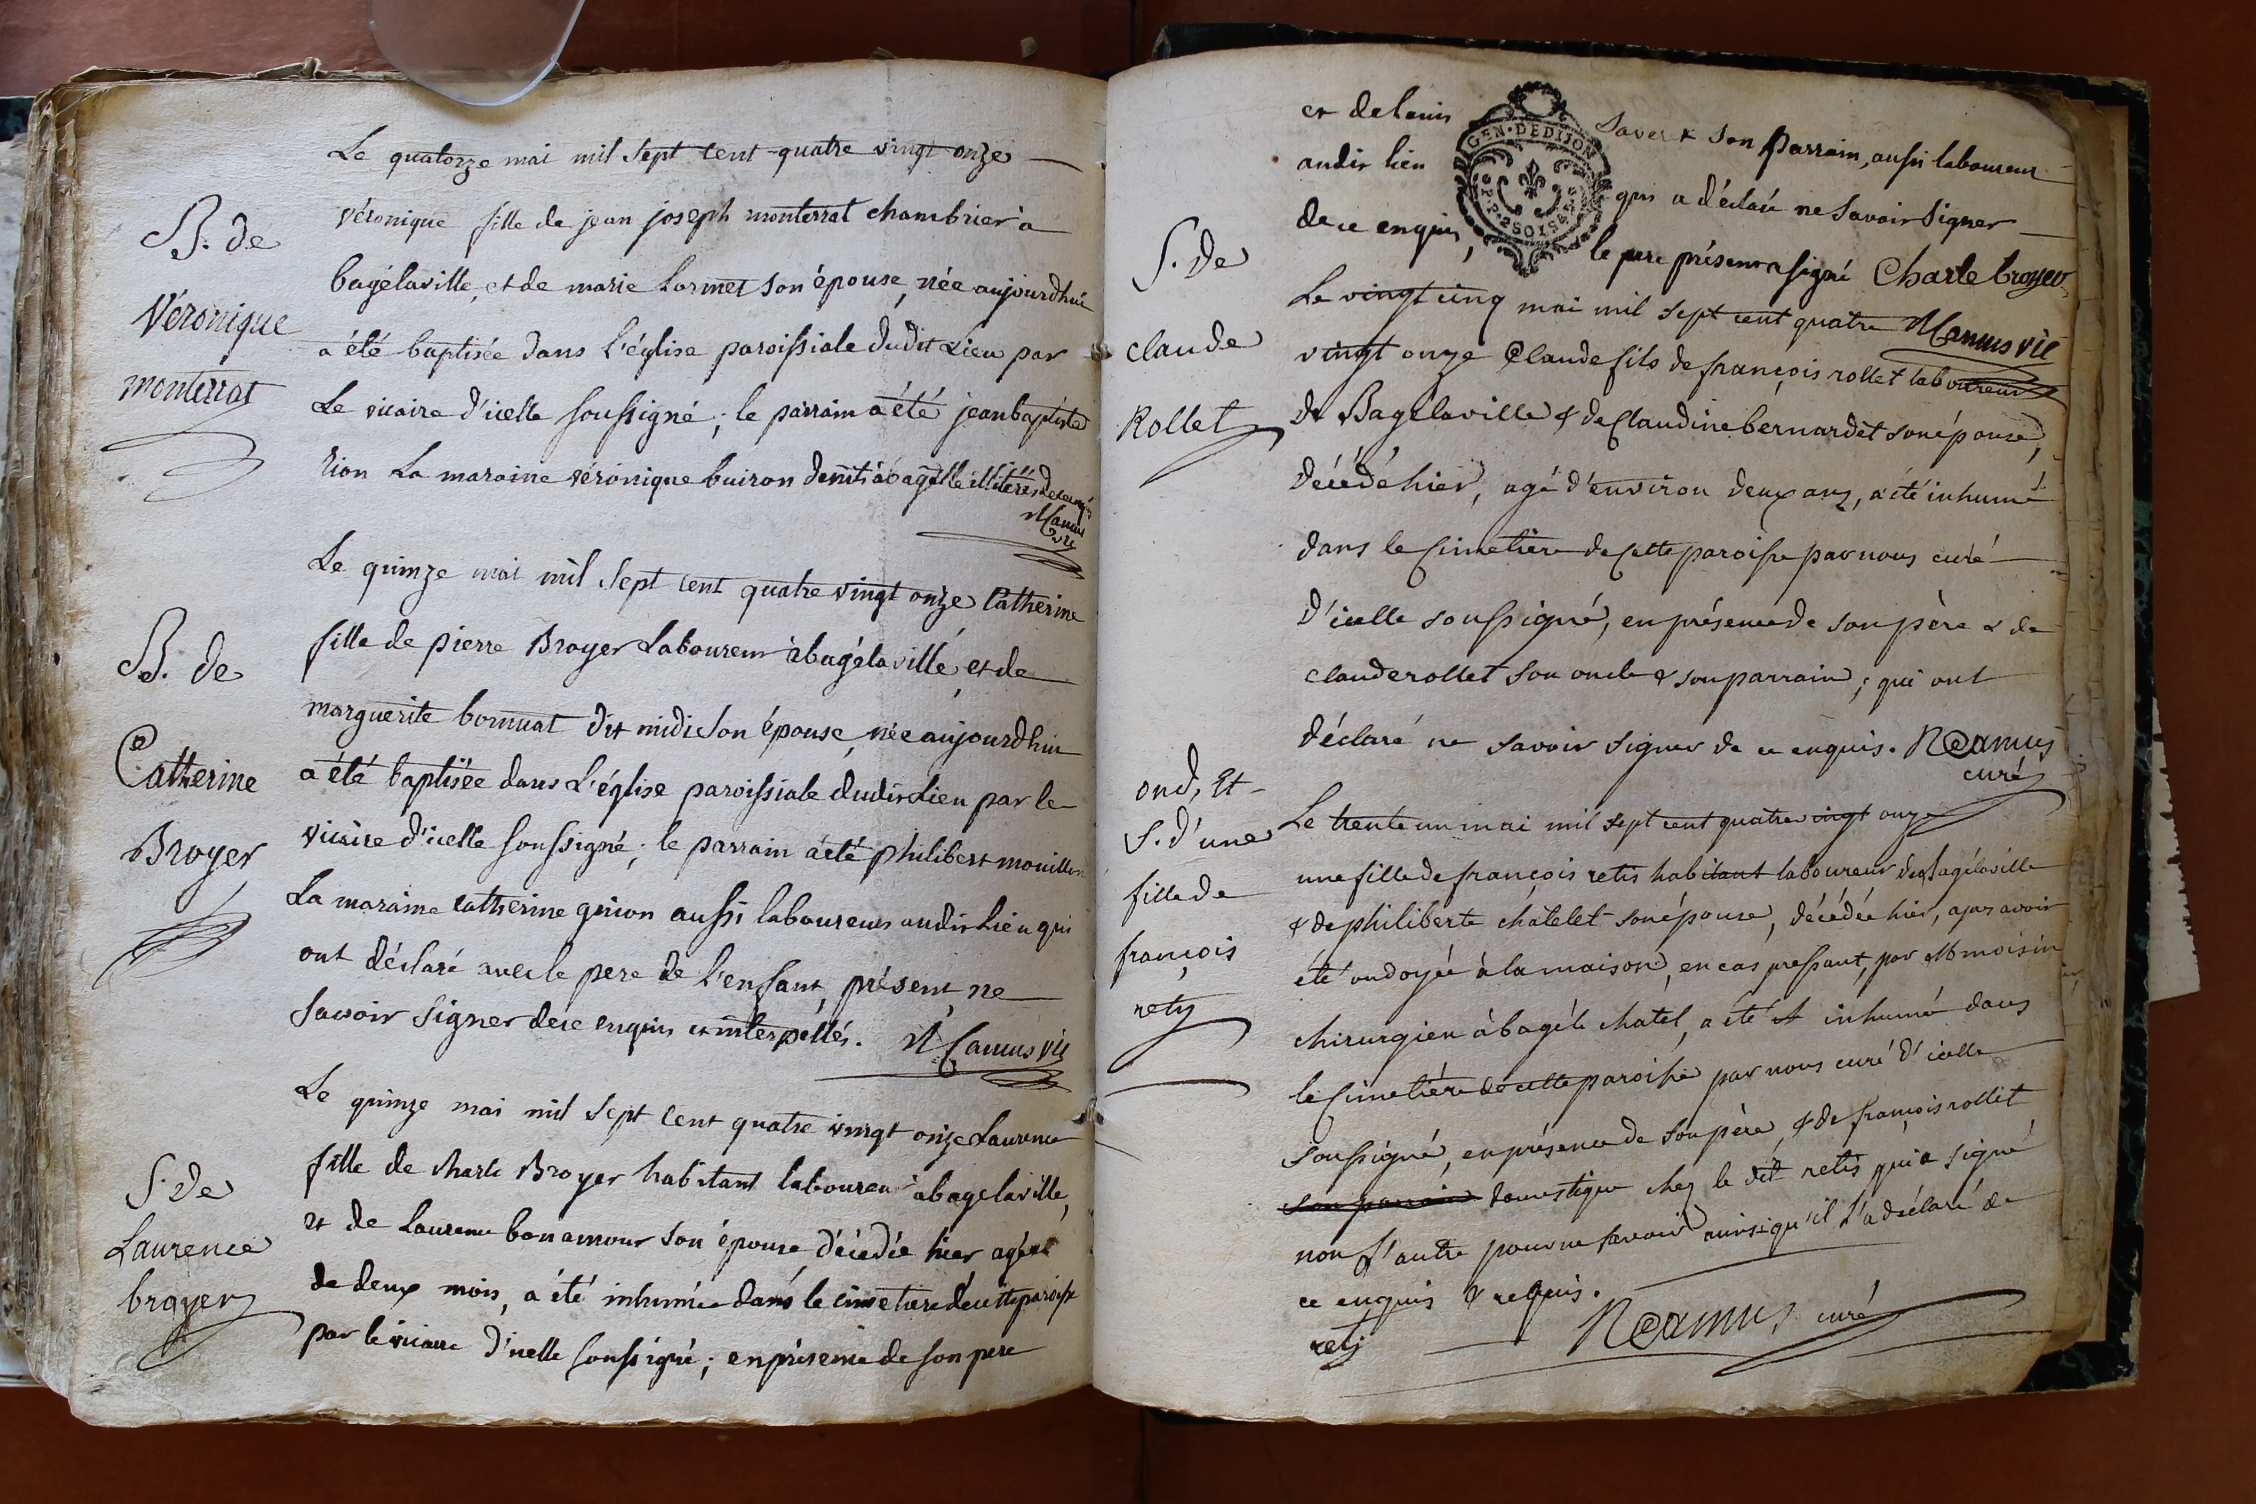 Le quatorze mai mil sept cent quatre vingt onze
B. de
Véronique
monterrat
véronique fille de jean joseph monterrat chambrier à
bagélaville, et de marie Lormet son épouse, née aujourdhui
a été baptisée dans l'église paroissiale dudit Lieu par
Le vicaire d'icelle soussigné; le parrain a été jean baptiste
rion La maraine véronique buiron
Camus
vic
Le quinze mai mil sept cent quatre vingt onze Catherine
B. de
Catherine
Broyer
fille de pierre Broyer Laboureur à bagélaville, et de
marguerite bornuat dit midi son épouse, née aujourdhui
a été baptisée dans L'église paroissiale dudit Lieu par le
vicaire d'icelle soussigné; le parrain a été philibert mouillon
La maraine catherine guion aussi laboureurs audit Lieu qui
ont déclaré avec le pere de l'enfant, présent, ne
savoir signer de ce enquis et interpellés. N. Camus vic
Le quinze mai mil sept cent quatre vingt onze Laurence
S. de
Laurence
broyer
fille de charle Broyer habitant laboureur à bagelaville,
et de Laurence bonamour son épouse, décédée hier agée
de deux mois, a été inhumée dans le cimetiere de cette paroisse
par le vicaire d'icelle soussigné; en présence de son pere
et de louis
GEN. DE DIJON
son parrain, aussi laboureur
audit lieu
qui a déclaré ne savoir signer
de ce enquis,
le pere présent a signé Charle broyer
Camus vic
S. de
claude
Rollet
Le vingt cinq mai mil sept cent quatre
vingt onze Claude fils de françois rollet laboureur
de Bagélaville & de Claudine bernardet son épouse,
décédé hier, agé d'environ deux ans, a été inhumé
dans le Cimetière de Cette paroisse par nous curé
d'icelle soussigné, en présence de son père & de
claude rollet son oncle & son parrain; qui ont
déclaré ne savoir signer de ce enquis. N Camus
curé
ond, Et
S. d'une
fille de
françois
rety
Le trente un mai mil sept cent quatre vingt onze
une fille de françois retis habitant laboureur de Bagélaville
& de philiberte châtelet son épouse, décédée hier, apres avoir
été ondoyée à la maison, en cas pressant, par Mr moisin
chirurgien à bagé le chatel, a été inhumé dans
le Cimetière de cette paroisse par nous curé d'icelle
soussigné, en présence de son père, & de françois rollet
son parrain domestique chez le dit retis qui a signé
non l'autre pour ne savoir ainsi qu'il l'a déclaré de
ce enquis & requis.
retj
N Camus curé